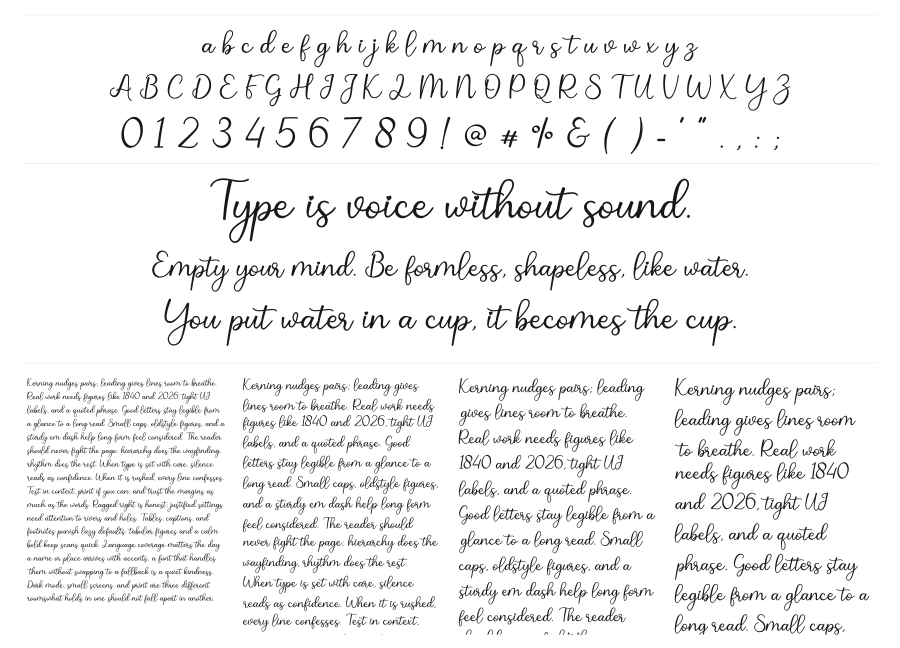 a b c d e f g h i j k l m n o p q r s t u v w x y z
A B C D E F G H I J K L M N O P Q R S T U V W X Y Z
0 1 2 3 4 5 6 7 8 9 ! @ # % & ( ) - ' " . , : ;
Type is voice without sound.
Empty your mind. Be formless, shapeless, like water.
You put water in a cup, it becomes the cup.
Kerning nudges pairs; leading gives lines room to breathe.
Real work needs figures like 1840 and 2026, tight UI
labels, and a quoted phrase. Good letters stay legible from
a glance to a long read. Small caps, oldstyle figures, and a
sturdy em dash help long form feel considered. The reader
should never fight the page: hierarchy does the wayfinding,
rhythm does the rest. When type is set with care, silence
reads as confidence. When it is rushed, every line confesses.
Test in context, print if you can, and trust the margins as
much as the words. Ragged right is honest; justified settings
need attention to rivers and holes. Tables, captions, and
footnotes punish lazy defaults; tabular figures and a calm
bold keep scans quick. Language coverage matters the day
a name or place arrives with accents; a font that handles
them without swapping to a fallback is a quiet kindness.
Dark mode, small screens, and print are three different
rooms; what holds in one should not fall apart in another.
Kerning nudges pairs; leading gives
lines room to breathe. Real work needs
figures like 1840 and 2026, tight UI
labels, and a quoted phrase. Good
letters stay legible from a glance to a
long read. Small caps, oldstyle figures,
and a sturdy em dash help long form
feel considered. The reader should
never fight the page: hierarchy does the
wayfinding, rhythm does the rest.
When type is set with care, silence
reads as confidence. When it is rushed,
every line confesses. Test in context,
Kerning nudges pairs; leading
gives lines room to breathe.
Real work needs figures like
1840 and 2026, tight UI
labels, and a quoted phrase.
Good letters stay legible from a
glance to a long read. Small
caps, oldstyle figures, and a
sturdy em dash help long form
feel considered. The reader
Kerning nudges pairs;
leading gives lines room
to breathe. Real work
needs figures like 1840
and 2026, tight UI
labels, and a quoted
phrase. Good letters stay
legible from a glance to a
long read. Small caps,